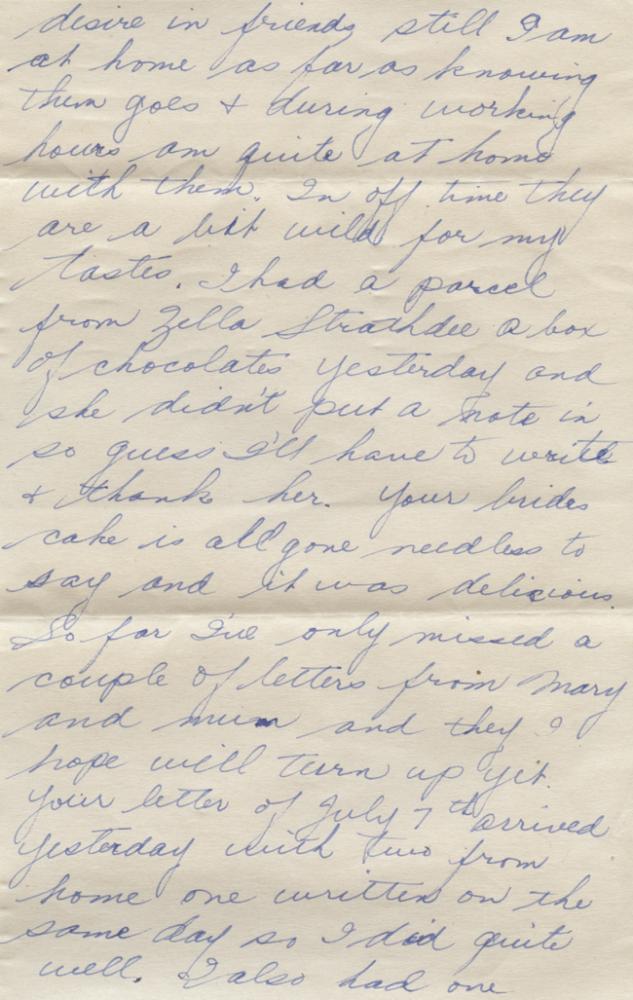 desire in friends still I am
at home as far as knowing
them goes & during working
hours am quite at home
with them. In off time they
are a bit wild for my
tastes. I had a parcel
from Zella Strathdee a box
of chocolates yesterday and
she didn't put a note in
so guess I'll have to write
& thank her. Your brides
cake is all gone needless to
say and it was delicious.
So far I've only missed a
couple of letters from Mary
and mum and they I
hope will turn up yet.
Your letter of July 7th arrived
yesterday with two from
home one written on the
same day so I did quite
well. I also had one